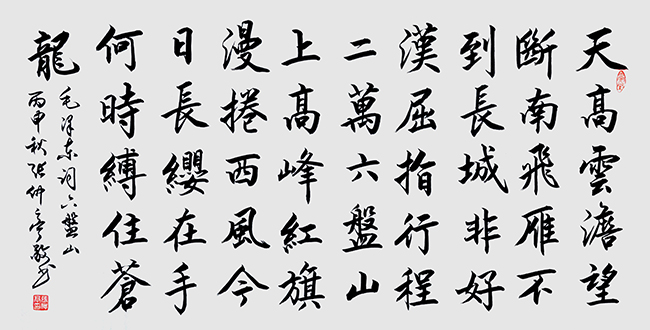 天高雲澹望
斷南飛雁不
到長城非好
漢屈指行程
二萬六盤山
上高峰紅旗
漫捲西風今
日長纓在手
何時縛住蒼
龍
毛澤東詞六盤山
丙申秋張仲亭敬書